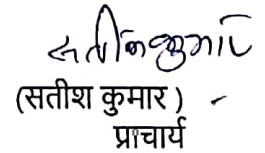 सतीश कुमार
(सतीश कुमार)
प्राचार्य